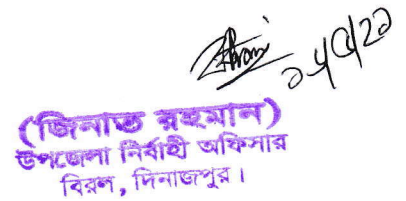 (জিনাত রহমান)
উপজেলা নির্বাহী অফিসার
বিরল, দিনাজপুর।